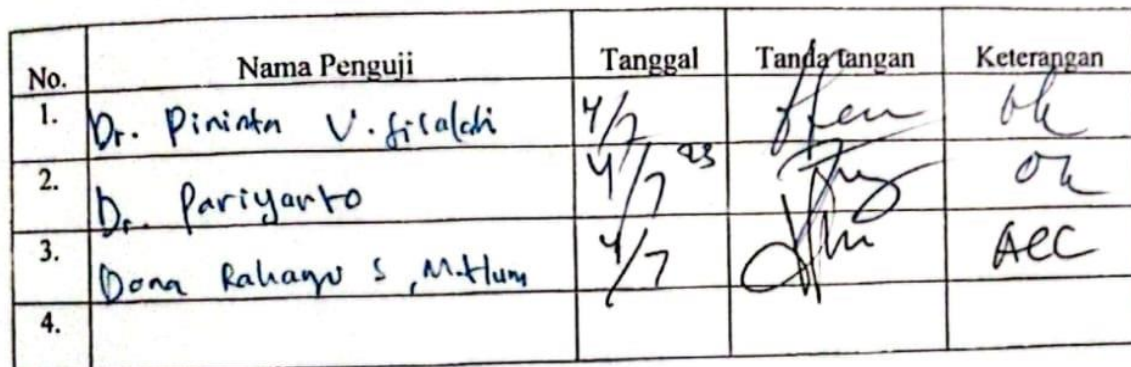 No. Nama Penguji Tanggal Tanda tangan Keterangan
1. Dr. Pininta V. 4/7 ok
2. Dr. Pariyanto 4/7 23 ok
3. Dona Rahayu S, M.Hum 4/7 ACC
4.